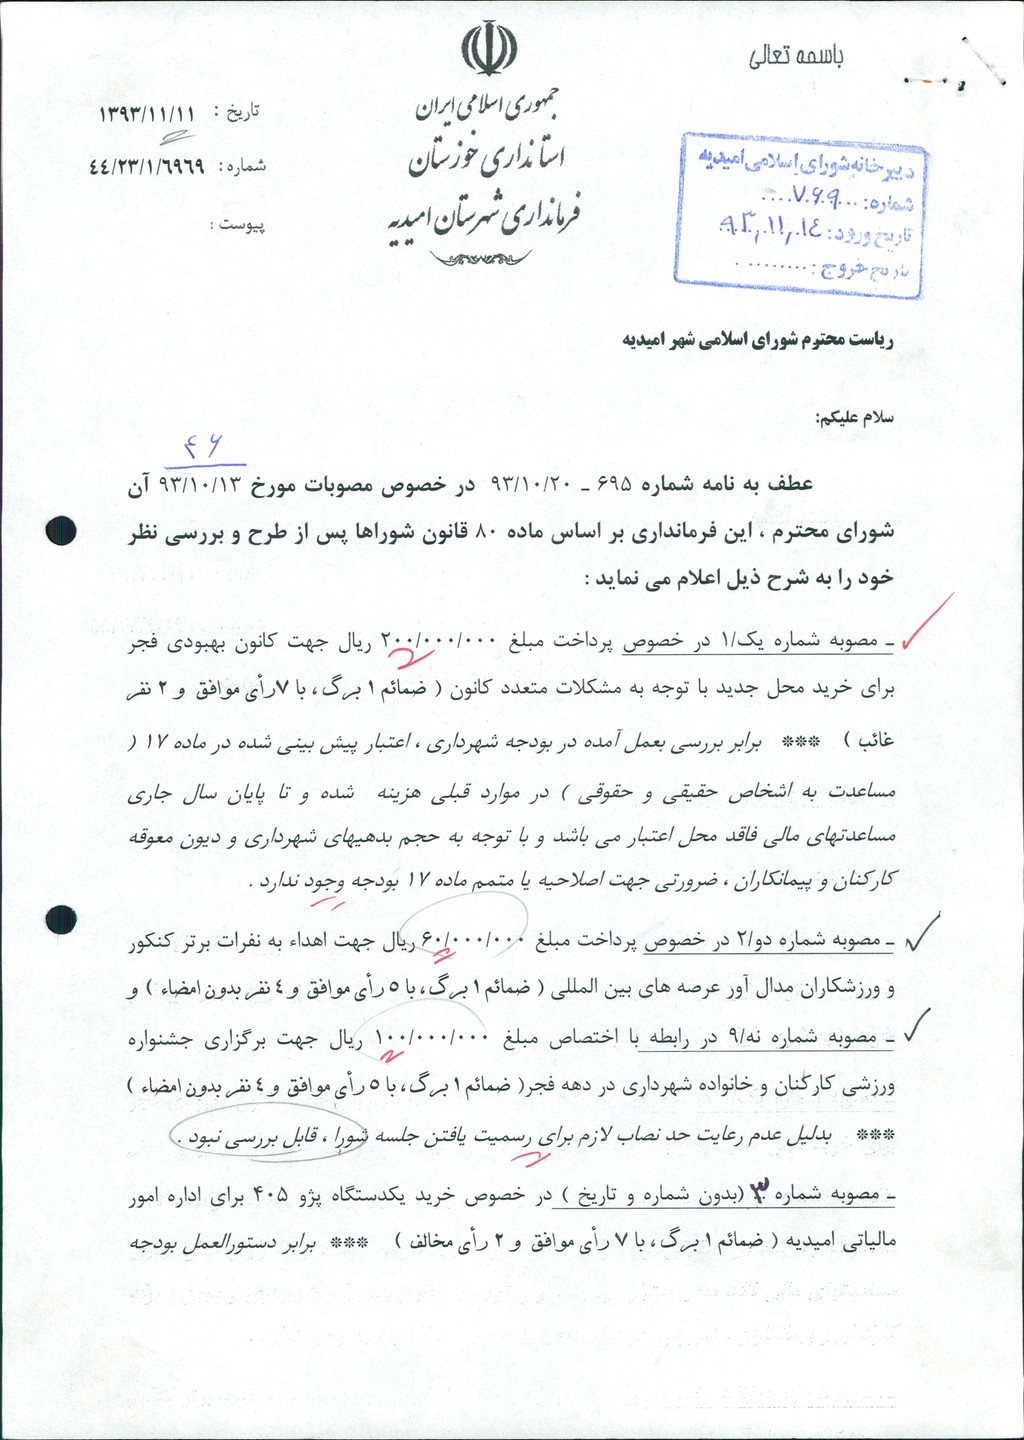 باسمه تعالی
جمهوری اسلامی ایران
استانداری خوزستان
فرمانداری شهرستان امیدیه
تاریخ : ۱۳۹۳/۱۱/۱۱
شماره : ۴۴/۲۳/۱/۶۹۶۹
پیوست :
دبیرخانه شورای اسلامی امیدیه
شماره: ...۷۶۹....
تاریخ ورود: ۹۳,۱۱,۱٤
تاریخ خروج : ........ .
ریاست محترم شورای اسلامی شهر امیدیه
سلام علیکم:
۴۶
عطف به نامه شماره ۶۹۵ ـ ۹۳/۱۰/۲۰ در خصوص مصوبات مورخ ۹۳/۱۰/۱۳ آن
شورای محترم ، این فرمانداری بر اساس ماده ۸۰ قانون شوراها پس از طرح و بررسی نظر
خود را به شرح ذیل اعلام می نماید :
ـ مصوبه شماره یک/۱ در خصوص پرداخت مبلغ ۲۰۰/۰۰۰/۰۰۰ ریال جهت کانون بهبودی فجر
برای خرید محل جدید با توجه به مشکلات متعدد کانون ( ضمائم ۱ برگ، با ۷رأی موافق و ۲ نفر
غائب ) *** برابر بررسی بعمل آمده در بودجه شهرداری ، اعتبار پیش بینی شده در ماده ۱۷ (
مساعدت به اشخاص حقیقی و حقوقی ) در موارد قبلی هزینه شده و تا پایان سال جاری
مساعدتهای مالی فاقد محل اعتبار می باشد و با توجه به حجم بدهیهای شهرداری و دیون معوقه
کارکنان و پیمانکاران ، ضرورتی جهت اصلاحیه یا متمم ماده ۱۷ بودجه وجود ندارد .
ـ مصوبه شماره دو/۲ در خصوص پرداخت مبلغ ۶۰/۰۰۰/۰۰۰ ریال جهت اهداء به نفرات برتر کنکور
و ورزشکاران مدال آور عرصه های بین المللی ( ضمائم ۱ برگ، با ۵ رأی موافق و ٤ نفر بدون امضاء ) و
ـ مصوبه شماره نه/۹ در رابطه با اختصاص مبلغ ۱۰۰/۰۰۰/۰۰۰ ریال جهت برگزاری جشنواره
ورزشی کارکنان و خانواده شهرداری در دهه فجر( ضمائم ۱ برگ، با ۵ رأی موافق و ٤ نفر بدون امضاء )
*** بدلیل عدم رعایت حد نصاب لازم برای رسمیت یافتن جلسه شورا ، قابل بررسی نبود .
ـ مصوبه شماره ۳ (بدون شماره و تاریخ ) در خصوص خرید یکدستگاه پژو ۴۰۵ برای اداره امور
مالیاتی امیدیه ( ضمائم ۱ برگ، با ۷ رأی موافق و ۲ رأی مخالف ) *** برابر دستورالعمل بودجه